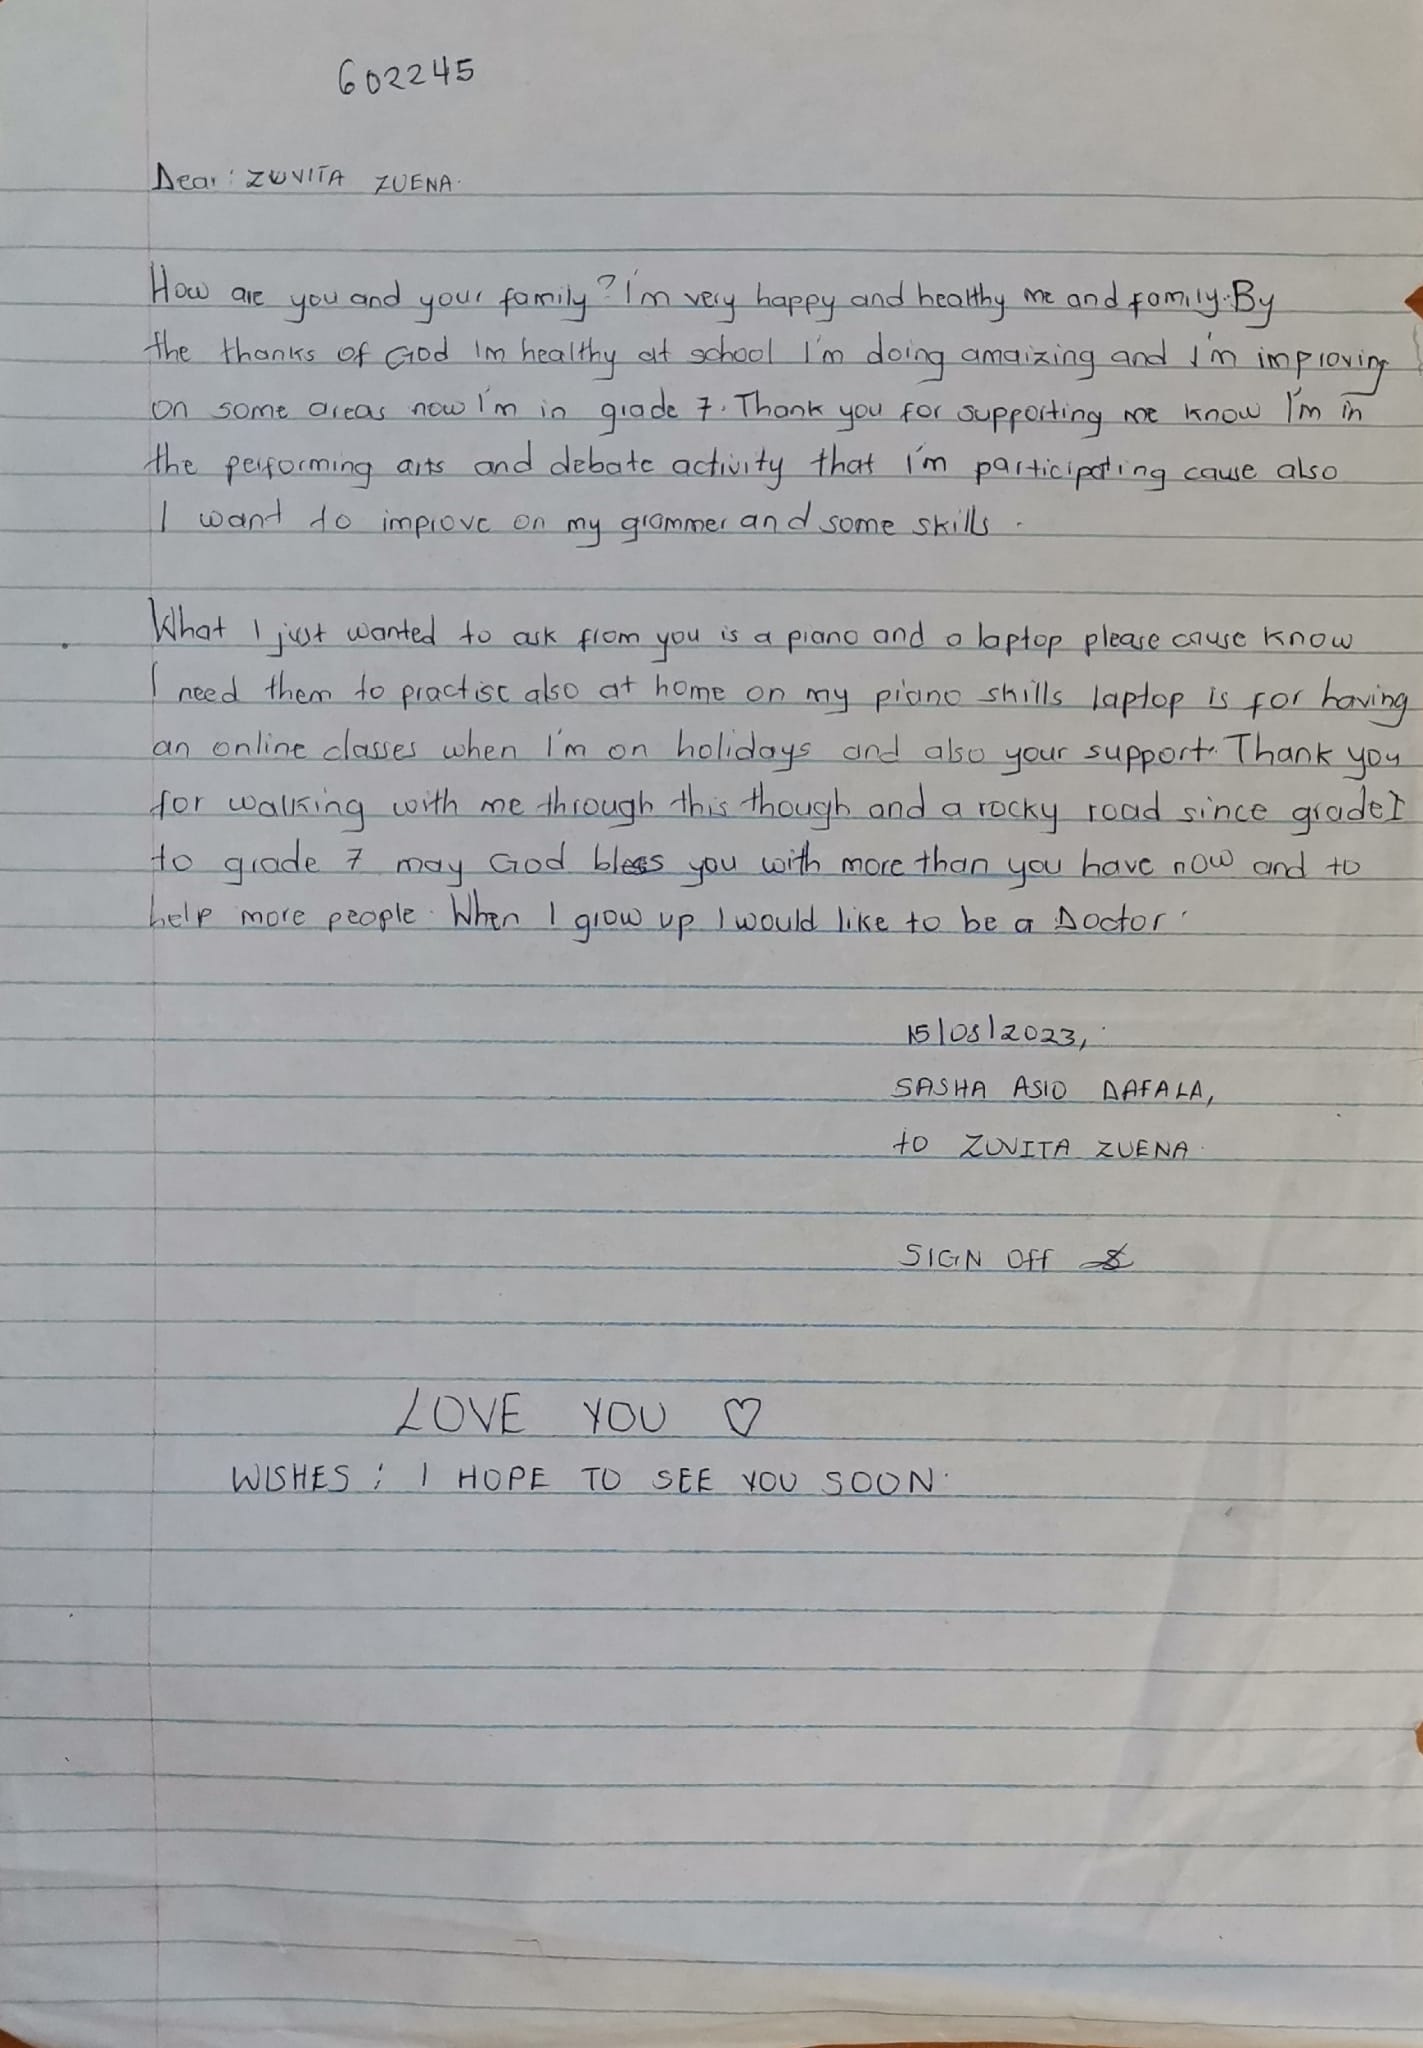 602245
Dear: ZUVITA ZUENA.
How are you and your family? I'm very happy and healthy me and family. By
the thanks of God Im healthy at school I'm doing amaizing and I'm improving
on some areas now I'm in grade 7. Thank you for supporting me know I'm in
the performing arts and debate activity that I'm participating cause also
I want to improve on my grammer and some skills.
What I just wanted to ask from you is a piano and a laptop please cause know
I need them to practise also at home on my piano skills laptop is for having
an online classes when I'm on holidays and also your support. Thank you
for walking with me through this though and a rocky road since grade 1
to grade 7 may God bless you with more than you have now and to
help more people. When I grow up I would like to be a Doctor.
15/08/2023,
SASHA ASIO DAFALA,
to ZUVITA ZUENA.
SIGN Off
LOVE YOU ♡
WISHES: I HOPE TO SEE YOU SOON.